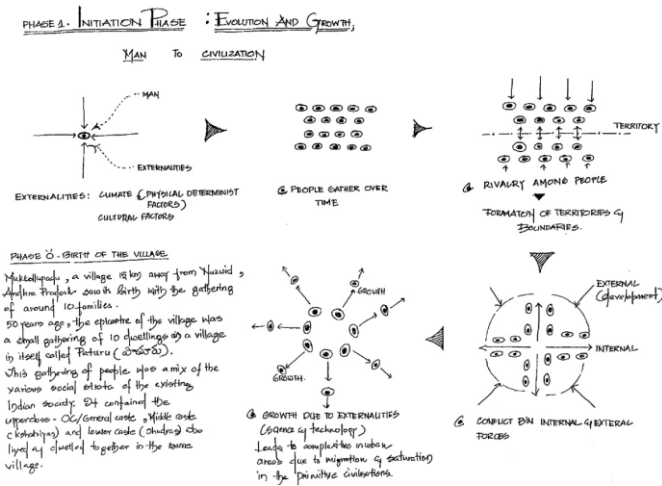 PHASE 1. INITIATION PHASE : EVOLUTION AND GROWTH,
MAN TO CIVILIZATION
MAN
EXTERNALITIES
EXTERNALITIES: CLIMATE (PHYSICAL DETERMINIST
FACTORS)
CULTURAL FACTORS
PEOPLE GATHER OVER
TIME
TERRITORY
RIVALRY AMONG PEOPLE
FORMATION OF TERRITORIES &
BOUNDARIES.
PHASE 0 - BIRTH OF THE VILLAGE
, a village 12 km away from Nuzvid,
Andhra Pradesh saw its birth with the gathering
of around 10 families.
50 years ago, the epicentre of the village was
a small gathering of 10 dwellings as a village
in itself called Paturu ( ).
This gathering of people was a mix of the
various social strata of the existing
Indian society. It contained the
upperclass - OC/General caste, Middle caste
(kshatriyas) and lower caste (Shudras) who
lived & dwelled together in the same
village.
GROWTH
GROWTH.
GROWTH DUE TO EXTERNALITIES
(science & technology)
Leads to complexities in urban
areas due to migration & saturation
in the primitive civilisations.
EXTERNAL
(development)
INTERNAL
CONFLICT B/N INTERNAL & EXTERAL
FORCES